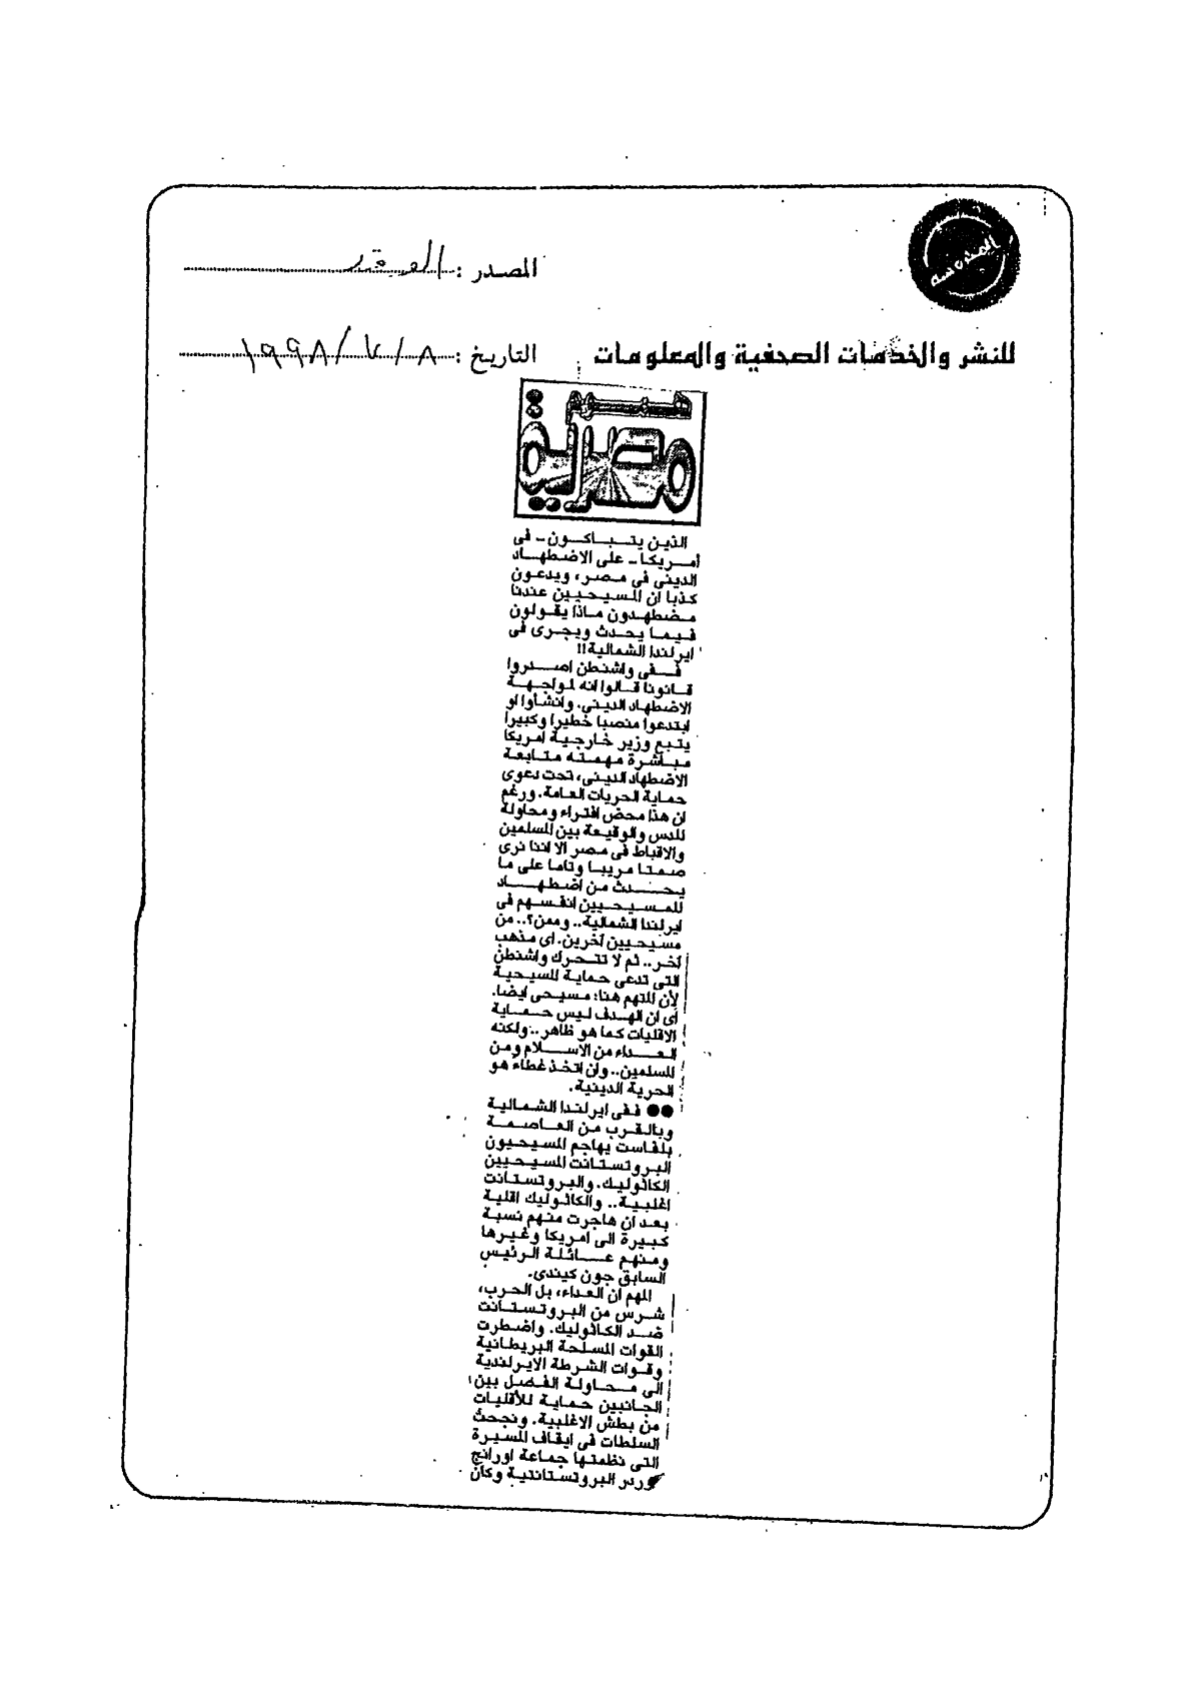 المصدر : الوفد
للنشر والخدمات الصحفية والمعلومات
التاريخ : ١٩٩٨/٧/٨
هموم
مصرية
الذين يتباكون ــ فى
أمريكا ــ على الاضطهاد
الدينى فى مصر، ويدعون
كذبا ان المسيحيين عندنا
مضطهدون ماذا يقولون
فيما يحدث ويجرى فى
ايرلندا الشمالية!!
ففى واشنطن اصدروا
قانونا قالوا انه لمواجهة
الاضطهاد الدينى. وانشأوا او
ابتدعوا منصبا خطيرا وكبيرا
يتبع وزير خارجية امريكا
مباشرة مهمته متابعة
الاضطهاد الدينى، تحت دعوى
حماية الحريات العامة. ورغم
ان هذا محض افتراء ومحاولة
للدس والوقيعة بين المسلمين
والاقباط فى مصر الا اننا نرى
صمتا مريبا وتاما على ما
يحدث من اضطهاد
للمسيحيين انفسهم فى
ايرلندا الشمالية.. وممن؟.. من
مسيحيين آخرين. اى مذهب
آخر.. ثم لا تتحرك واشنطن
التى تدعى حماية المسيحية
لأن المتهم هنا: مسيحى ايضا.
أى ان الهدف ليس حماية
الاقليات كما هو ظاهر.. ولكنه
العداء من الاسلام ومن
المسلمين.. وان اتخذ غطاء هو
الحرية الدينية.
●● ففى ايرلندا الشمالية
وبالقرب من العاصمة
بلفاست يهاجم المسيحيون
البروتستانت المسيحيين
الكاثوليك. والبروتستانت
اغلبية.. والكاثوليك اقلية
بعد ان هاجرت منهم نسبة
كبيرة الى امريكا وغيرها
ومنهم عائلة الرئيس
السابق جون كيندى.
المهم ان العداء، بل الحرب،
شرس من البروتستانت
ضد الكاثوليك. واضطرت
القوات المسلحة البريطانية
وقوات الشرطة الايرلندية
الى محاولة الفصل بين
الجانبين حماية للأقليات
من بطش الاغلبية. ونجحت
السلطات فى ايقاف المسيرة
التى نظمتها جماعة اورانج
وردر البروتستانتية وكان